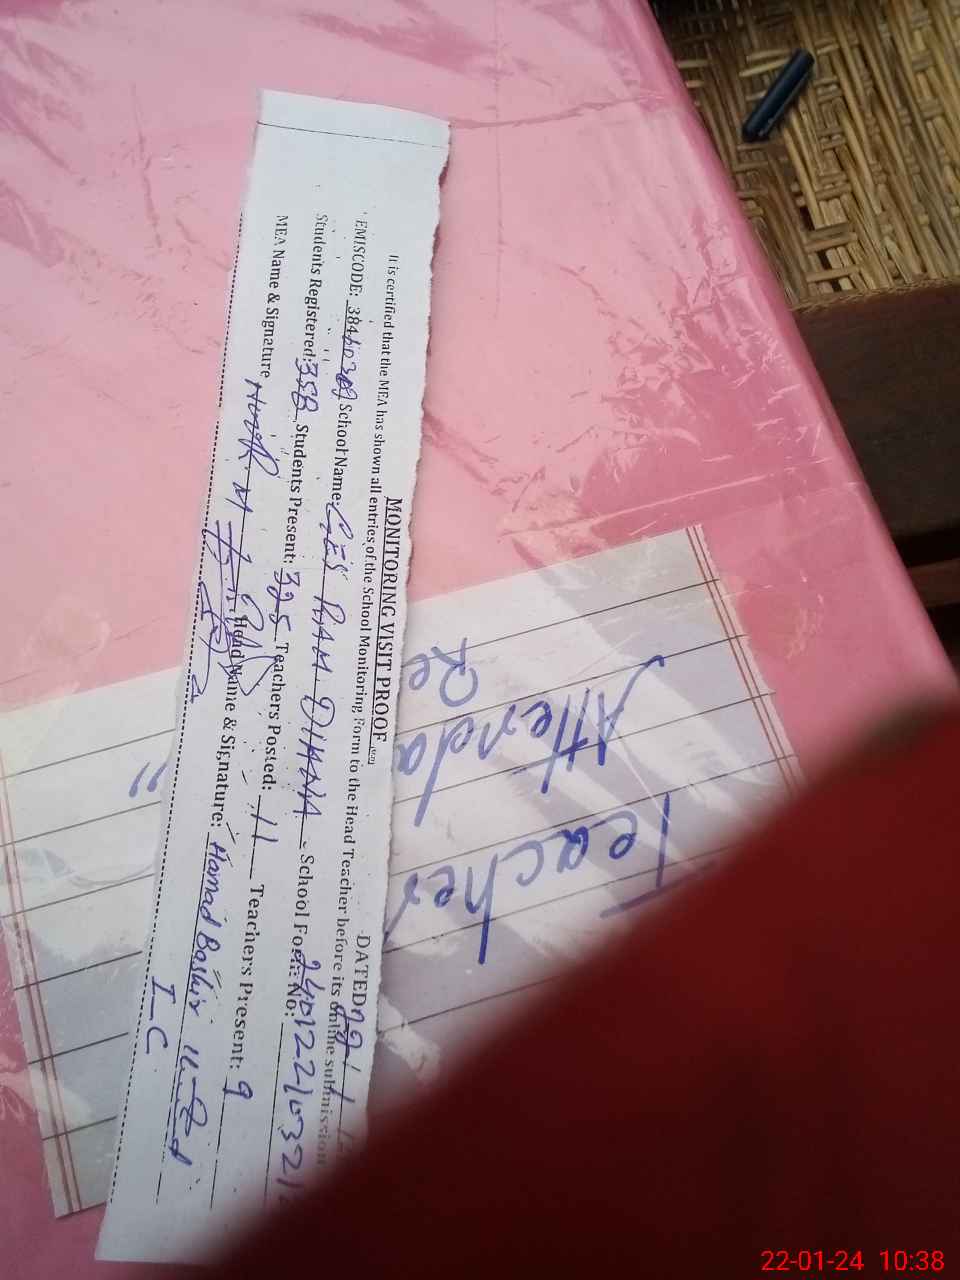 MONITORING VISIT PROOF
DATED
It is certified that the MEA has shown all entries of the School Monitoring Form to the Head Teacher before its online submission
EMISCODE: School Name: RAM DIANA School Form No:
Students Registered: 358 Students Present: 325 Teachers Posted: 11 Teachers Present: 9
MEA Name & Signature Head Name & Signature: Hamad Bashir
I-C
Teacher
Attenda
Re
22-01-24 10:38